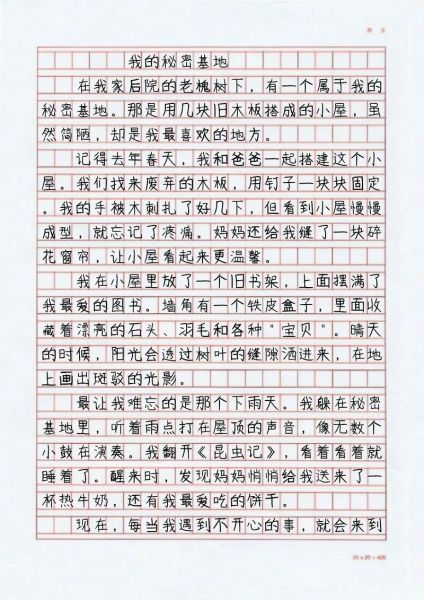 我的秘密基地
在我家后院的老槐树下，有一个属于我的
秘密基地。那是用几块旧木板搭成的小屋，虽
然简陋，却是我最喜欢的地方。
记得去年春天，我和爸爸一起搭建这个小
屋。我们找来废弃的木板，用钉子一块块固定
。我的手被木刺扎了好几下，但看到小屋慢慢
成型，就忘记了疼痛。妈妈还给我缝了一块碎
花窗帘，让小屋看起来更温馨。
我在小屋里放了一个旧书架，上面摆满了
我最爱的图书。墙角有一个铁皮盒子，里面收
藏着漂亮的石头、羽毛和各种"宝贝"。晴天
的时候，阳光会透过树叶的缝隙洒进来，在地
上画出斑驳的光影。
最让我难忘的是那个下雨天。我躲在秘密
基地里，听着雨点打在屋顶的声音，像无数个
小鼓在演奏。我翻开《昆虫记》，看着看着就
睡着了。醒来时，发现妈妈悄悄给我送来了一
杯热牛奶，还有我最爱吃的饼干。
现在，每当我遇到不开心的事，就会来到
20×20=400